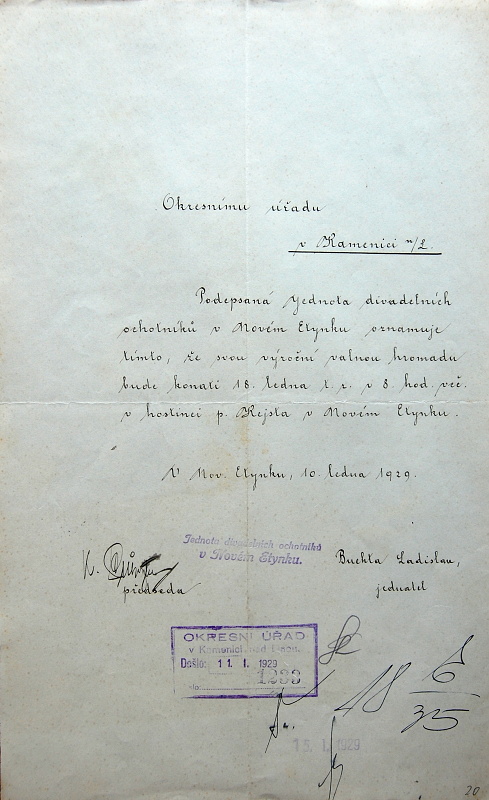 Okresnímu úřadu
v Kamenici n/L.
Podepsaná Jednota divadelních
ochotníků v Novém Etynku oznamuje
tímto, že svou výroční valnou hromadu
bude konati 18. ledna t. r. v 8. hod. več.
v hostinci p. Rejsta v Novém Etynku.
V Nov. Etynku, 10. ledna 1929.
Jednota divadelních ochotníků
v Novém Etynku.
K.
předseda
Buchta Ladislav,
jednatel
OKRESNÍ ÚŘAD
v Kamenici nad Lipou.
Došlo: 11. I. 1929
1239
48 6/35
15. I. 1929
20